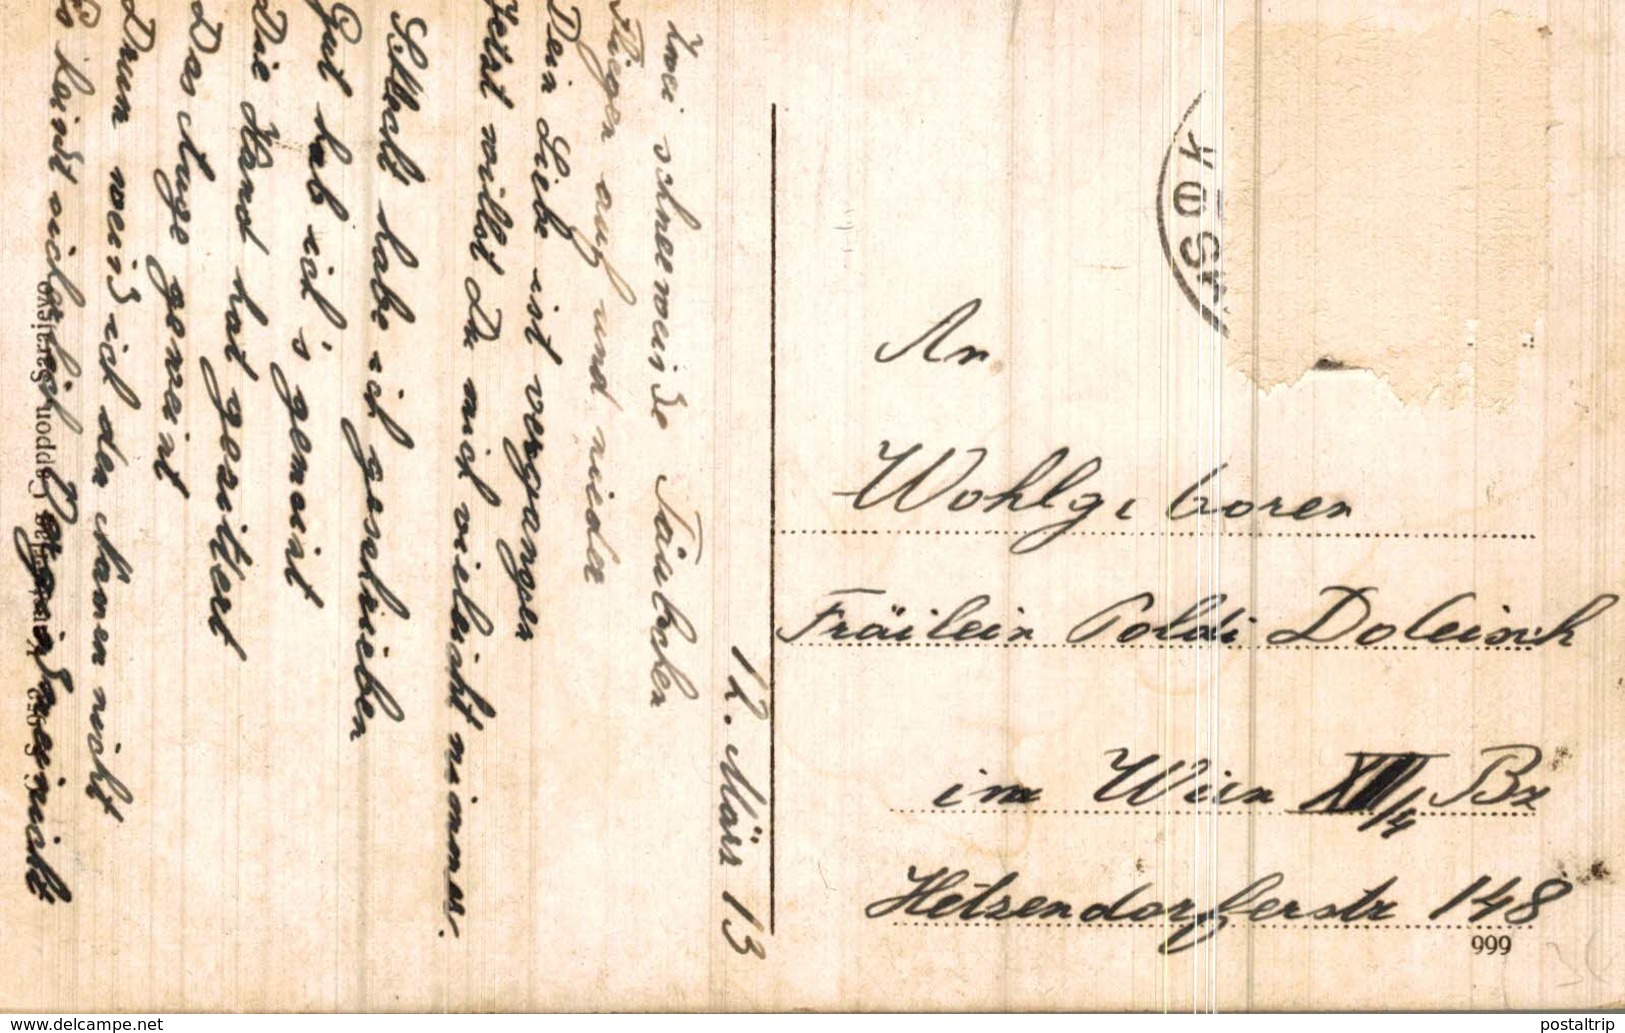 12. März 13
Zwei schneeweiße Täubchen
Fliegen auf und nieder
Dein Liebe ist vergangen
Jetzt willst Du mich vieleicht nimmer.
Schlecht habe ich geschrieben
Gut hab ich's gemeint
Die Hand hat gezittert
Das Auge geweint
Drum weiß ich den Namen nicht
An
Wohlgeboren
Fräilein Poldi Doleisch
im Wien XIII/4 Bz
Hetzendorferstr 148
999
www.delcampe.net
postaltrip